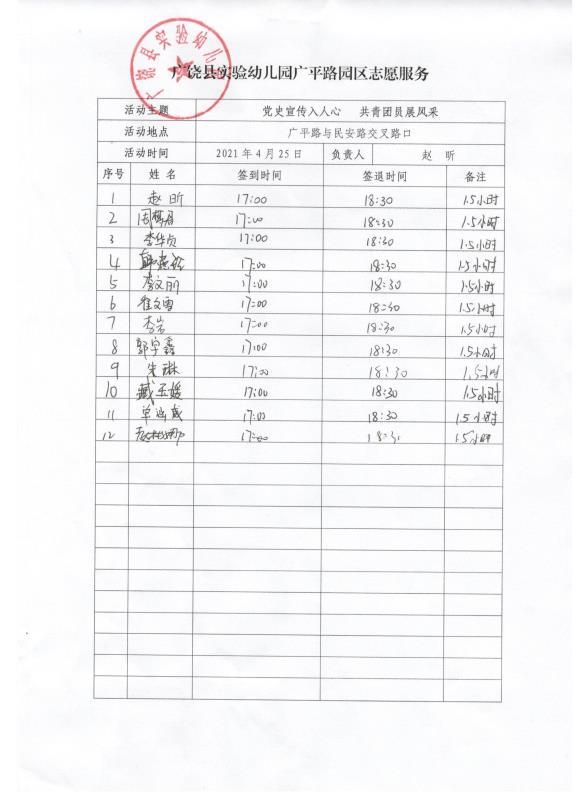 广饶县实验幼儿园
广饶县实验幼儿园广平路园区志愿服务
活动主题 党史宣传入人心 共青团员展风采
活动地点 广平路与民安路交叉路口
活动时间 2021年4月25日 负责人 赵 昕
序号 姓名 签到时间 签退时间 备注
1 赵昕 17:00 18:30 1.5小时
2 17:00 18:30 1.5小时
3 李华贞 17:00 18:30 1.5小时
4 17:00 18:30 1.5小时
5 李文丽 17:00 18:30 1.5小时
6 崔文雪 17:00 18:30 1.5小时
7 李岩 17:00 18:30 1.5小时
8 郭宇鑫 17:00 18:30 1.5小时
9 朱琳 17:00 18:30 1.5小时
10 臧玉媛 17:00 18:30 1.5小时
11 17:00 18:30 1.5小时
12 17:00 18:30 1.5小时